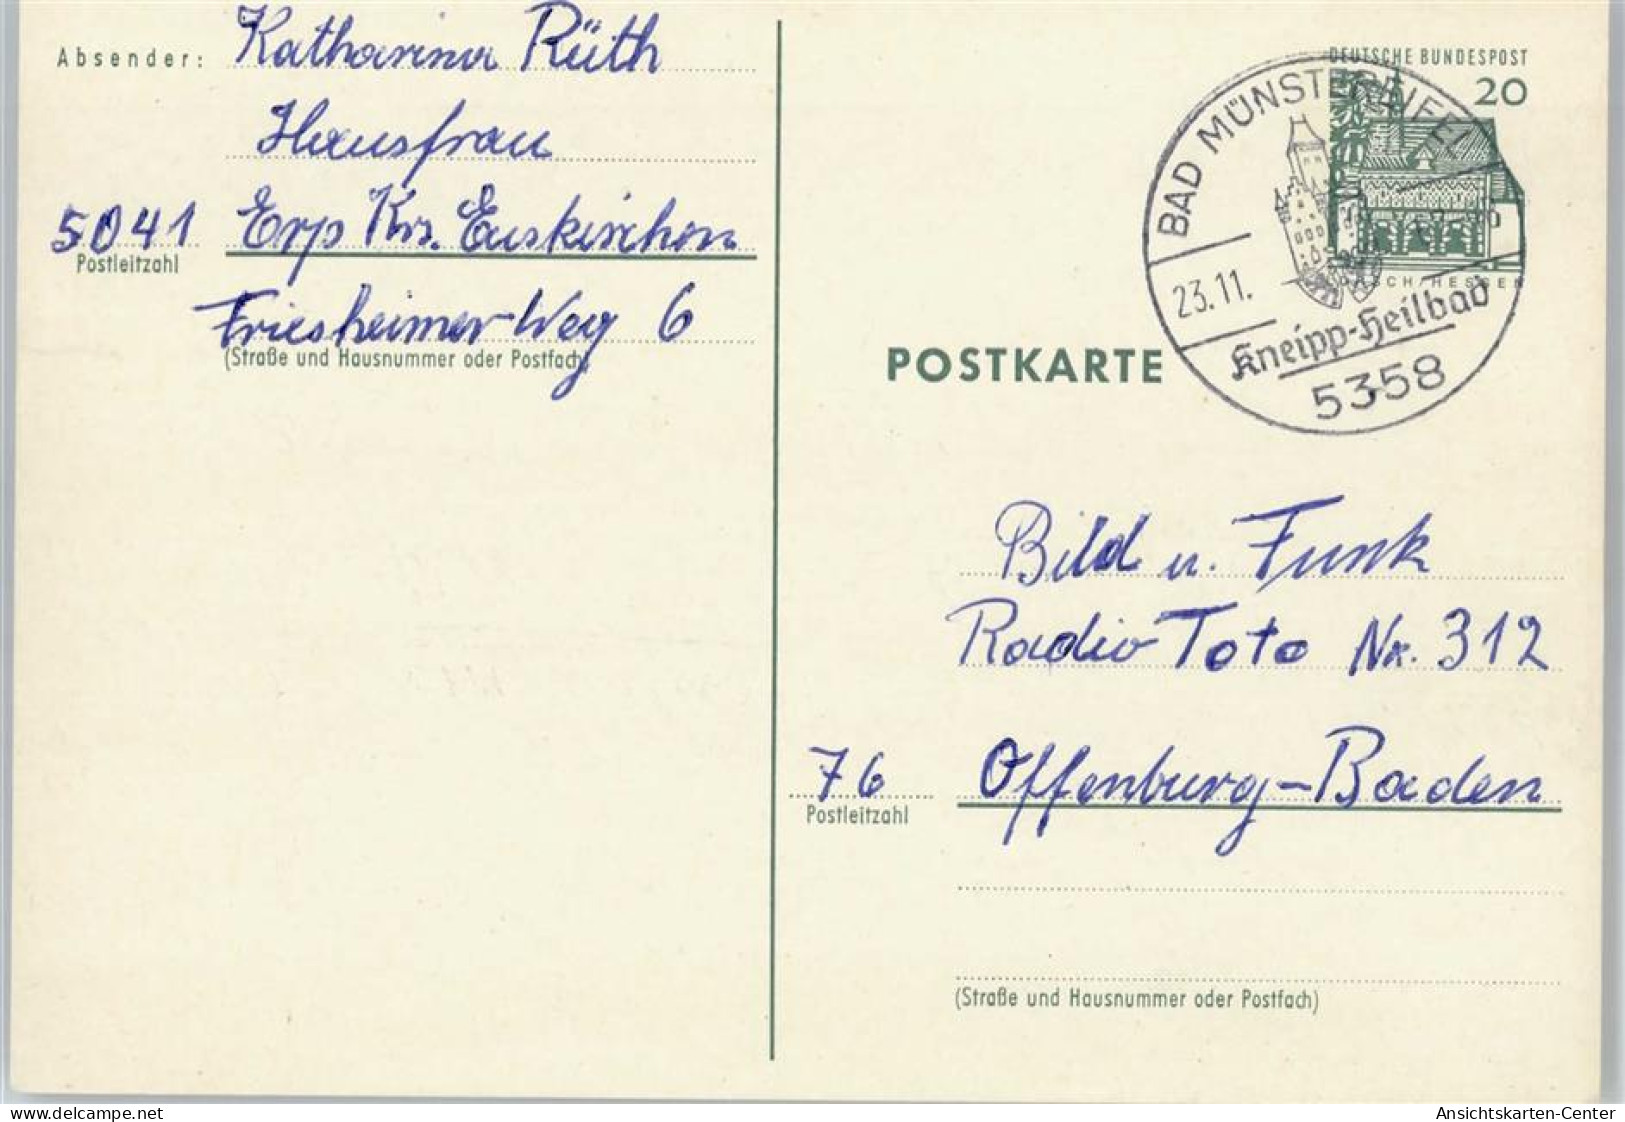 Absender: Katharina Rüth
Hausfrau
5041 Erp Krs. Euskirchen
Postleitzahl
Friesheimer-Weg 6
(Straße und Hausnummer oder Postfach)
DEUTSCHE BUNDESPOST
20
BAD MÜNSTEREIFEL
23.11.
LORSCH/HESSEN
Kneipp-Heilbad
5358
POSTKARTE
Bild u. Funk
Radio Toto Nr. 312
76 Offenburg-Baden
Postleitzahl
(Straße und Hausnummer oder Postfach)
www.delcampe.net
Ansichtskarten-Center